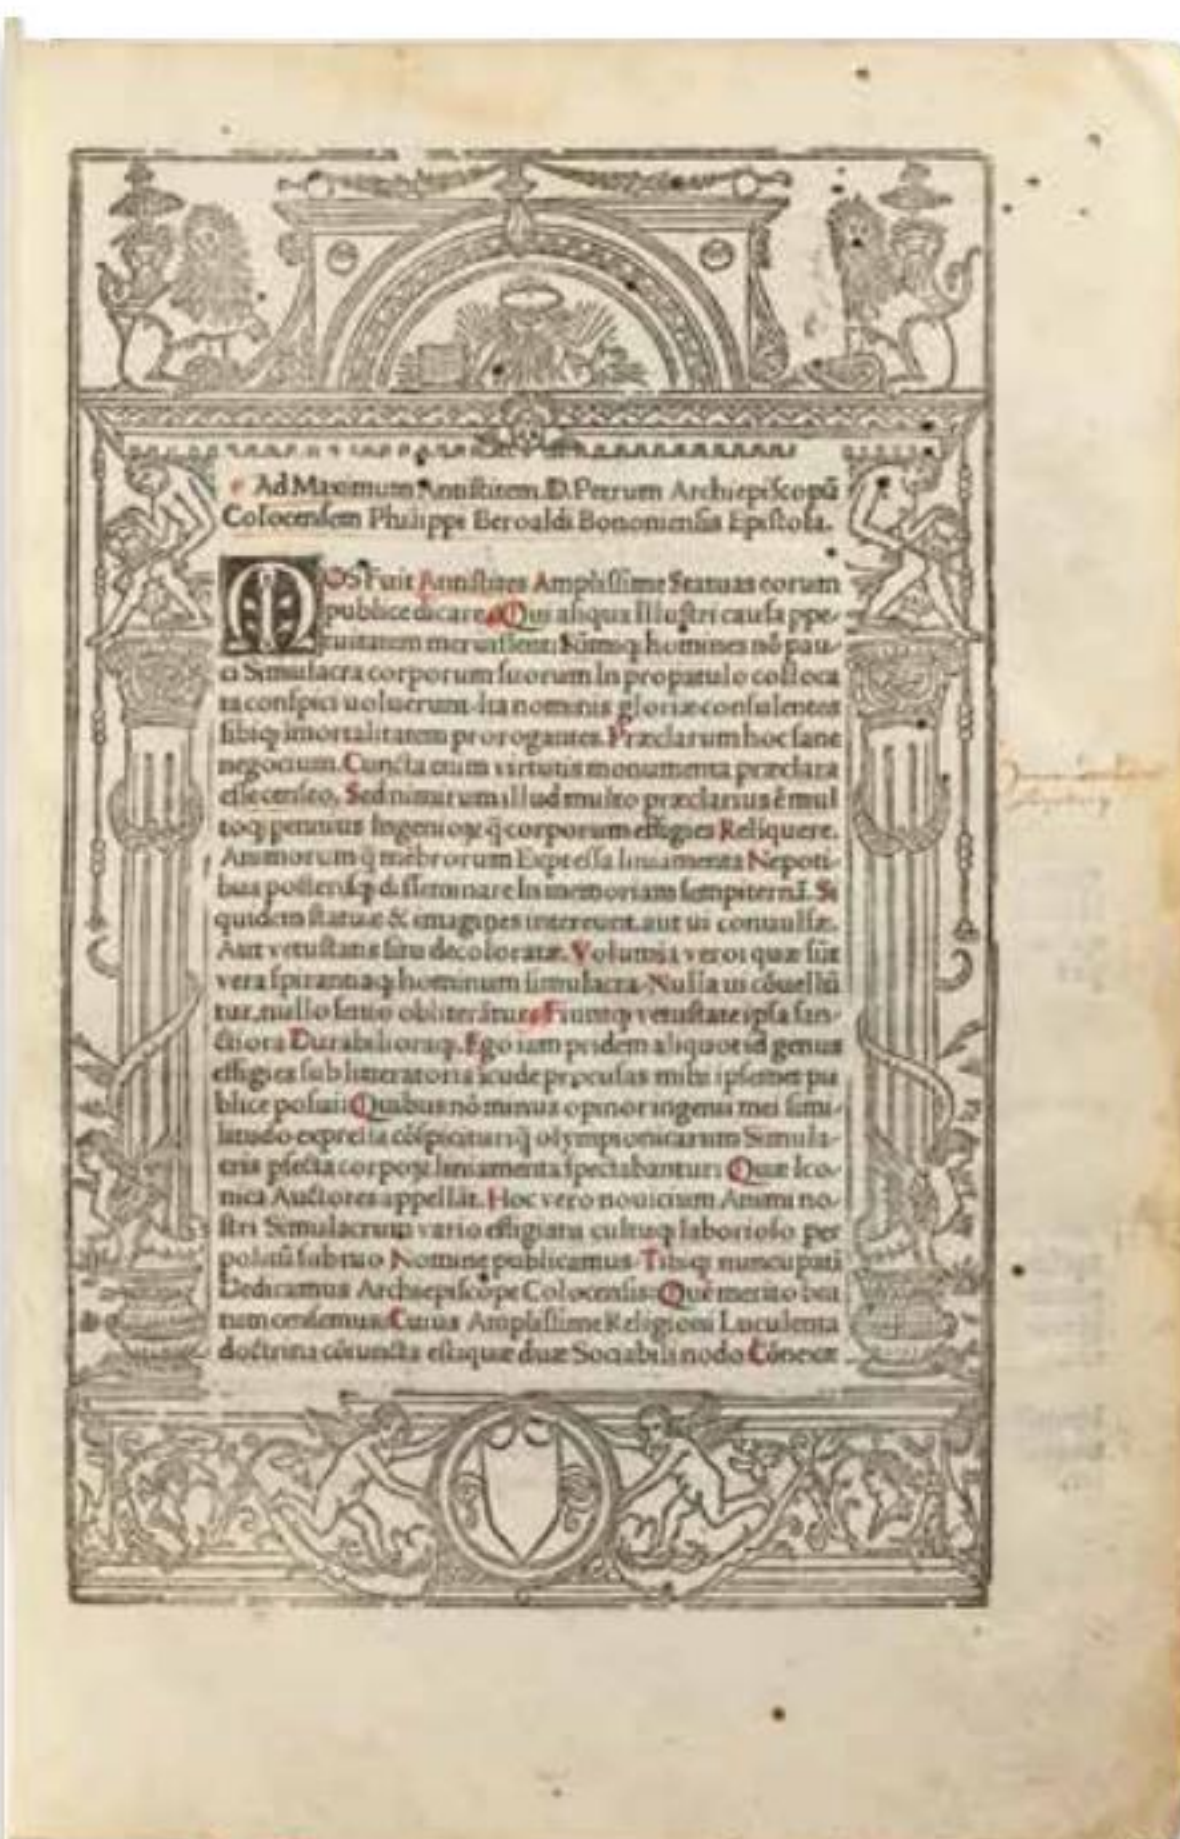 Ad Maximum Antistitem.D.Petrum Archiepiscopū
Colocensem Philippi Beroaldi Bononiensis Epistola.
MOS Fuit Antistites Amplissime Statuas eorum
publice dicare. Qui aliqua illustri causa ꝑpe-
tuitatem meruissent: Nūmiq; homines nō pau-
ci Simulacra corporum suorum In propatulo colloca
ta conspici uoluerunt. Ita nominis gloriæ consulentes
sibiq; imortalitatem prorogantes. Præclarum hoc sane
negocium. Cuncta enim virtutis monumenta præclara
esse censeo. Sed nimirum illud multo præclarius ē mul
toq; Ingenioꝝ q̄ corporum effigies Reliquere.
Animorum q̄ mēbrorum Expressa liniamenta Nepoti-
bus posterisq; disseminare In memoriam
quidem statuæ & imagines intereunt. aut ui conuulsæ.
Aut vetustatis situ decoloratæ. Volumia vero: quæ sūt
vera spirantiaq; hominum simulacra. Nulla ui cōuellū
tur, nullo senio Fiuntq; vetustate ipsa san-
ctiora Durabilioraq;. Ego iam pridem aliquot id genus
effigies sub litteratoria īcude procusas mihi ipsemet pu
blice posui: Quibus nō minus opinor ingenii mei simi-
litudo expressa cōspicitur: q̄ olympionicarum Simula-
cris corpoꝝ liniamenta spectabantur: Quæ Ico-
nica Auctores appellāt. Hoc vero nouicium Animi no-
stri Simulacrum vario effigiatu cultuq; laborioso per
politū Nomine publicamus. Tibiq; nuncupati
Dedicamus Archiepiscope Colocensis: Quē merito bea
tum censemus: Cuius Amplissime Religioni Luculenta
doctrina cōiuncta est: quæ duæ Sociabili nodo Cōnexæ